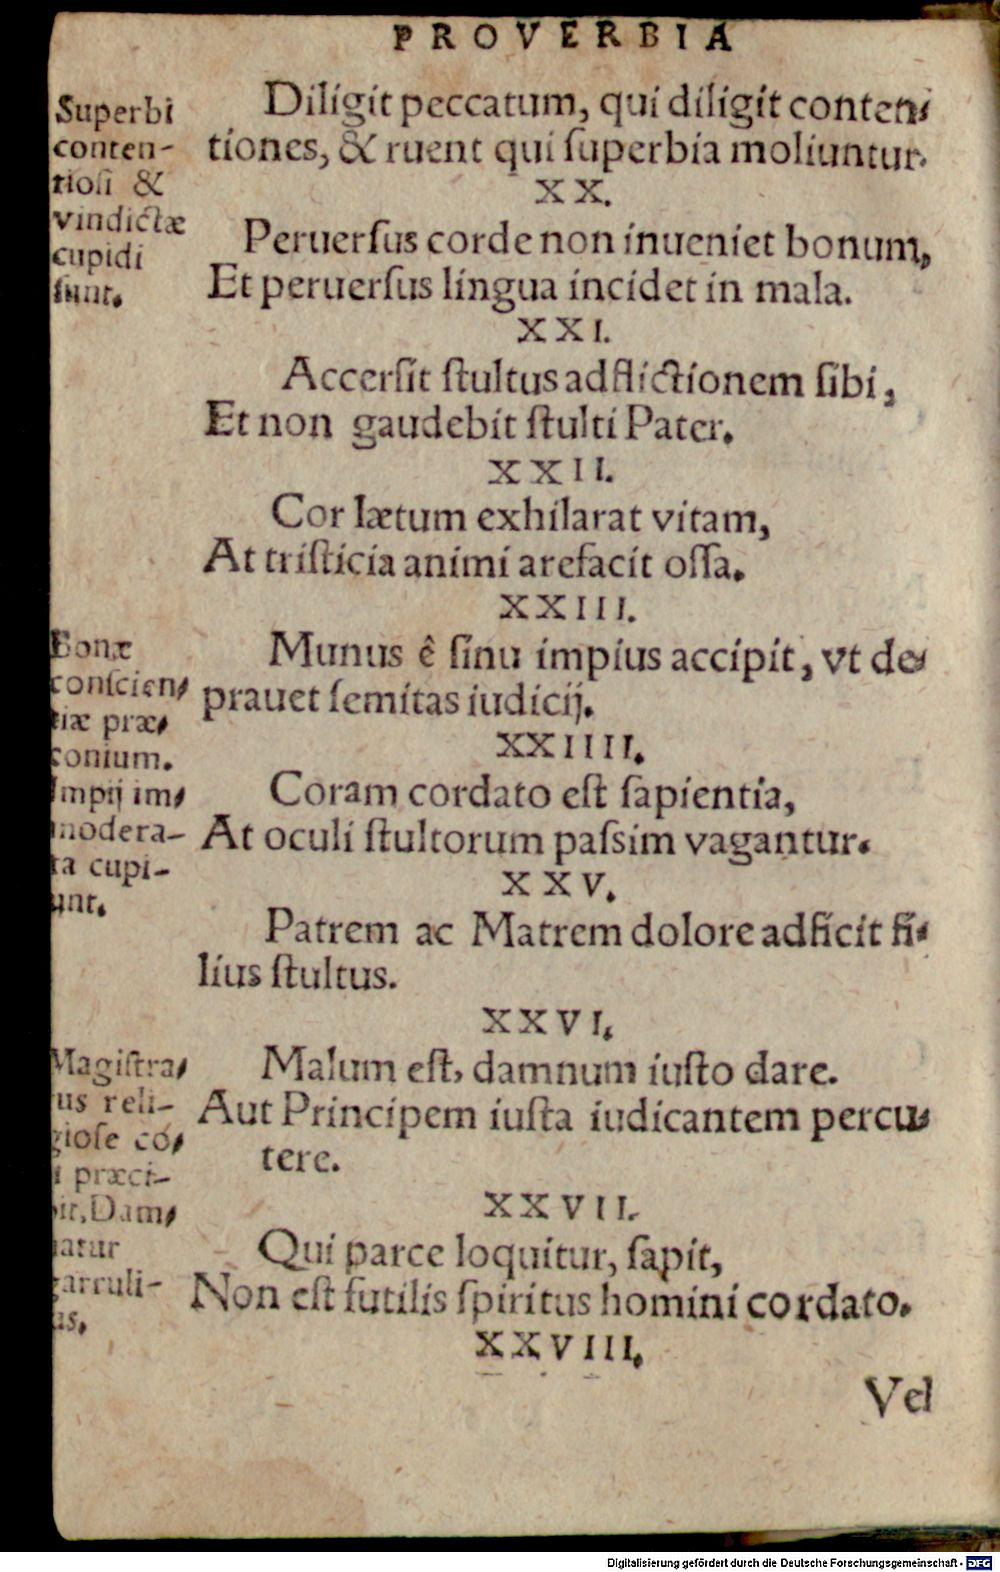 PROVERBIA
Superbi
conten-
tiosi &
vindictæ
cupidi
sunt.
Diligit peccatum, qui diligit conten-
tiones, & ruent qui superbia moliuntur.
XX.
Peruersus corde non inueniet bonum,
Et peruersus lingua incidet in mala.
XXI.
Accersit stultus adflictionem sibi,
Et non gaudebit stulti Pater.
XXII.
Cor lætum exhilarat vitam,
At tristicia animi arefacit ossa.
XXIII.
Bonæ
conscien-
tiæ præ-
conium.
Impij im-
modera-
ta cupi-
unt.
Munus ê sinu impius accipit, vt de-
prauet semitas iudicij.
XXIIII.
Coram cordato est sapientia,
At oculi stultorum passim vagantur.
XXV.
Patrem ac Matrem dolore adficit fi-
lius stultus.
XXVI.
Magistra-
us reli-
giose có-
i præci-
pit. Dam-
natur
garruli-
as.
Malum est, damnum iusto dare.
Aut Principem iusta iudicantem percu-
tere.
XXVII.
Qui parce loquitur, sapit,
Non est futilis spiritus homini cordato.
XXVIII.
Vel
Digitalisierung gefördert durch die Deutsche Forschungsgemeinschaft - DFG